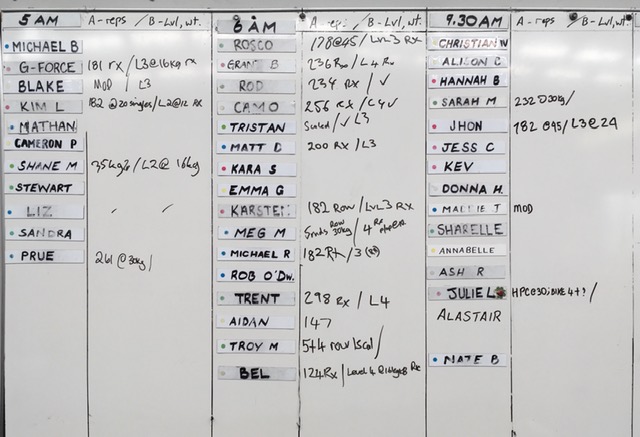 5 AM A-reps / B-Lvl, wt.
MICHAEL B
G-FORCE 181 rx / L3@16kg rx
BLAKE MOD / L3
KIM L 182 @20 singles / L2@12 RX
NATHAN
CAMERON P
SHANE M 35kg / L2@ 16kg
STEWART
LIZ
SANDRA
PRUE 261 @30kg /
6 AM A-reps / B-Lvl, wt.
ROSCO 178@45 / LVL 3 RX
GRANT B 236 Rx / L4 Rx
ROD 234 RX / ✓
CAMO 256 RX /
TRISTAN Scaled / ✓ L3
MATT D 200 RX / L3
KARA S
EMMA G
KARSTEN 182 ROW / LVL3 RX
MEG M 30kg / 4 Rx
MICHAEL R 182 RX / 3 (RX)
ROB O'DW.
TRENT 298 RX / L4
AIDAN 147
TROY M 5+4 row /
BEL 124 RX / Level 4
9.30 AM A-reps / B-Lvl, wt
CHRISTIAN W
ALISON C
HANNAH B
SARAH M 232 @30kg /
JHON 182 @45 / L3@24
JESS C
KEV
DONNA H.
MADDIE T MOD
SHARELLE
ANNABELLE
ASH R
JULIE L HPC@30; BIKE 4+? /
ALASTAIR
NATE B